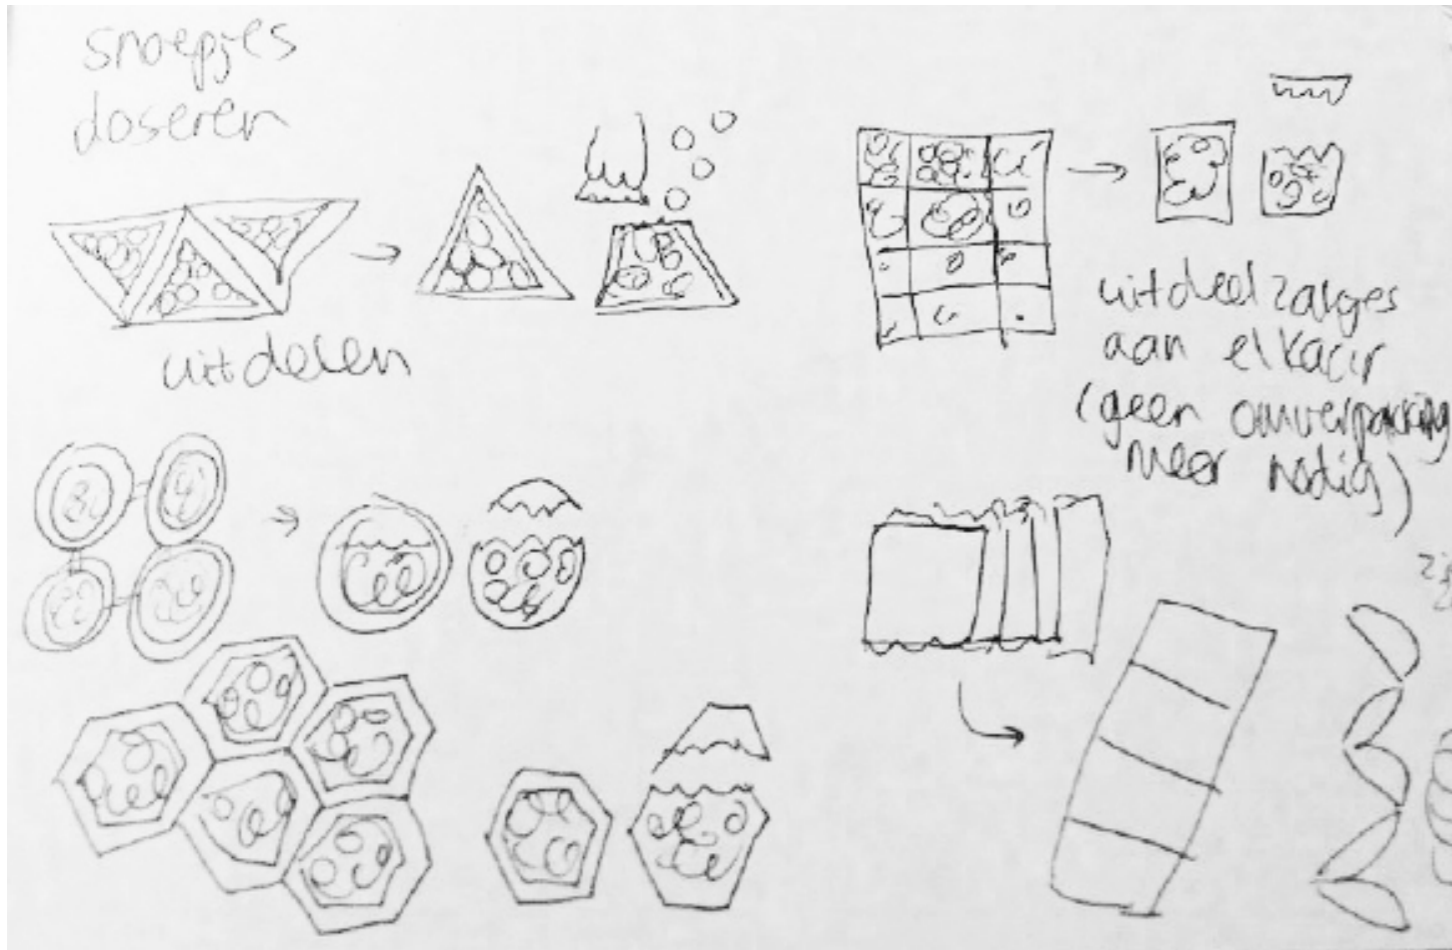 snoepjes
doseren
uitdelen
uitdeelzakjes
aan elkaar
(geen omverpakking
meer nodig)